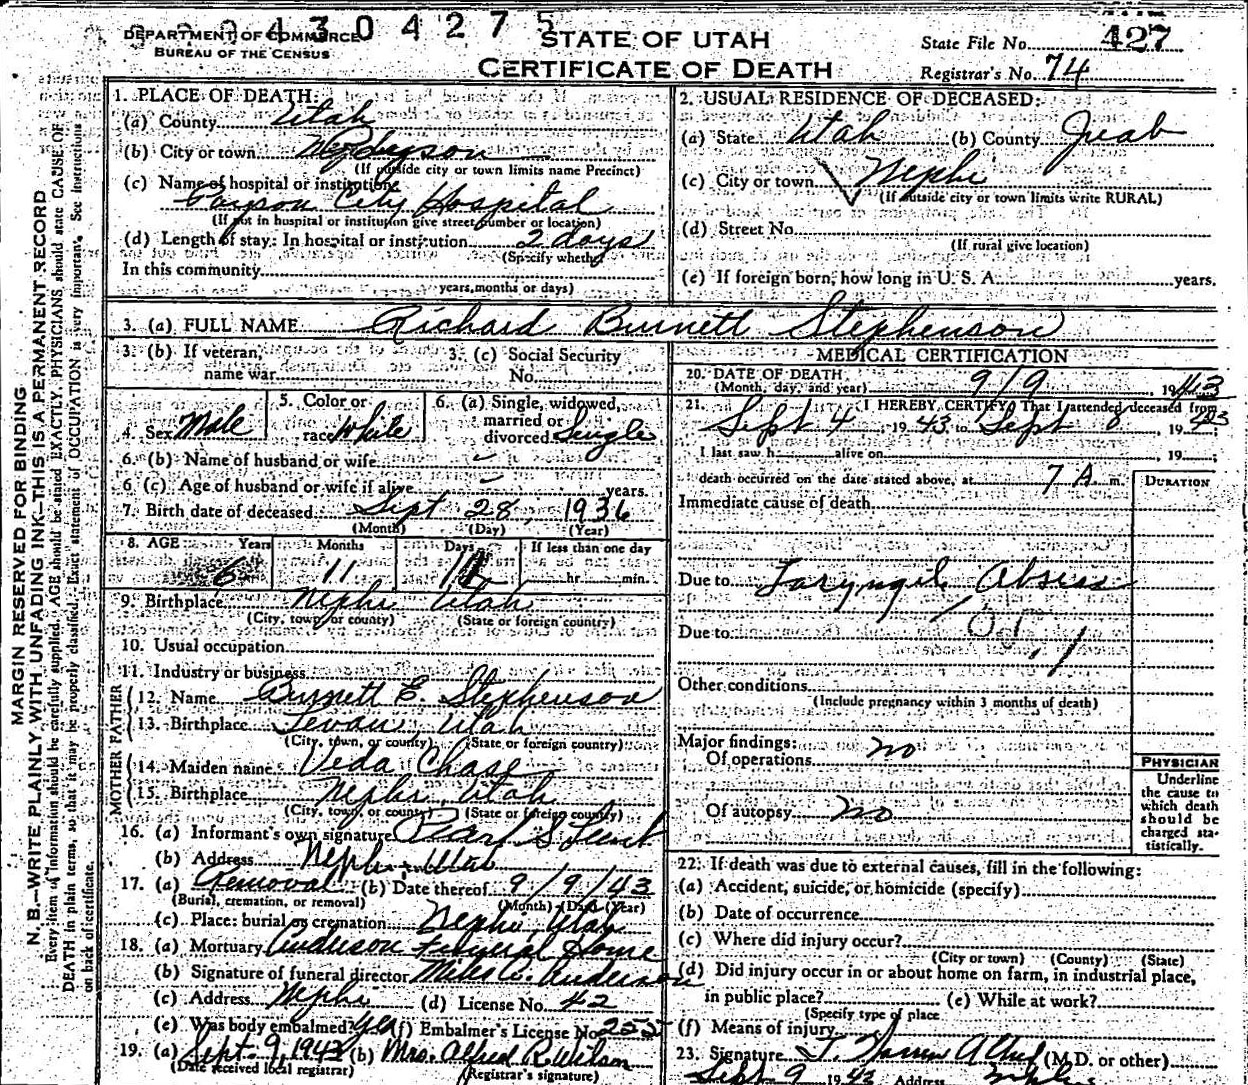 4304275
DEPARTMENT OF COMMERCE
BUREAU OF THE CENSUS
STATE OF UTAH
CERTIFICATE OF DEATH
State File No. 427
Registrar's No. 74
MARGIN RESERVED FOR BINDING
N. B.—WRITE PLAINLY WITH UNFADING INK—THIS IS A PERMANENT RECORD
Every item of information should be carefully supplied. AGE should be stated EXACTLY. PHYSICIANS should state CAUSE OF
DEATH in plain terms, so that it may be properly classified. Exact statement of OCCUPATION is very important. See instructions
on back of certificate.
1. PLACE OF DEATH:
(a) County Utah
(b) City or town
(If outside city or town limits name Precinct)
(c) Name of hospital or institution:
Payson City Hospital
(If not in hospital or institution give street number or location)
(d) Length of stay: In hospital or institution 2 days
(Specify whether
In this community
years, months or days)
2. USUAL RESIDENCE OF DECEASED:
(a) State Utah (b) County Juab
(c) City or town Nephi
(If outside city or town limits write RURAL)
(d) Street No.
(If rural give location)
(e) If foreign born, how long in U. S. A. years.
3. (a) FULL NAME Richard Burnett Stephenson
3. (b) If veteran, name war
3. (c) Social Security No.
4. Sex Male
5. Color or race White
6. (a) Single, widowed, married or divorced Single
6. (b) Name of husband or wife -
6 (c) Age of husband or wife if alive - years.
7. Birth date of deceased Sept 28, 1936
(Month) (Day) (Year)
8. AGE Years Months Days If less than one day
6 11 hr. min.
9. Birthplace Nephi Utah
(City, town, or county) (State or foreign country)
10. Usual occupation
11. Industry or business
FATHER
12. Name Burnett E. Stephenson
13. Birthplace Levan, Utah
(City, town, or county) (State or foreign country)
MOTHER
14. Maiden name Veda Chase
15. Birthplace Nephi, Utah
(City, town, or county) (State or foreign country)
16. (a) Informant's own signature Pearl S
(b) Address Nephi, Utah
17. (a) Removal (b) Date thereof 9/9/43
(Burial, cremation, or removal) (Month) (Day) (Year)
(c) Place: burial or cremation Nephi, Utah
18. (a) Mortuary Anderson Funeral Home
(b) Signature of funeral director Miles A. Anderson
(c) Address Nephi (d) License No. 42
(e) Was body embalmed? yes (f) Embalmer's License No. 255
19. (a) Sept. 9, 1943 (b) Mrs. Alfred R. Wilson
(Date received local registrar) (Registrar's signature)
MEDICAL CERTIFICATION
20. DATE OF DEATH
(Month, day, and year) 9/9, 1943
21. I HEREBY CERTIFY, That I attended deceased from
Sept 4, 1943 to Sept 8, 1943
I last saw h alive on , 19 ;
death occurred on the date stated above, at 7 A. m.
DURATION
Immediate cause of death
Due to Laryngeal Abscess
Due to
Other conditions
(Include pregnancy within 3 months of death)
Major findings:
Of operations no
Of autopsy no
PHYSICIAN
Underline
the cause to
which death
should be
charged sta-
tistically.
22. If death was due to external causes, fill in the following:
(a) Accident, suicide, or homicide (specify)
(b) Date of occurrence
(c) Where did injury occur?
(City or town) (County) (State)
(d) Did injury occur in or about home on farm, in industrial place,
in public place? (e) While at work?
(Specify type of place
(f) Means of injury
23. Signature (M.D. or other)
Sept 9 1943 Address